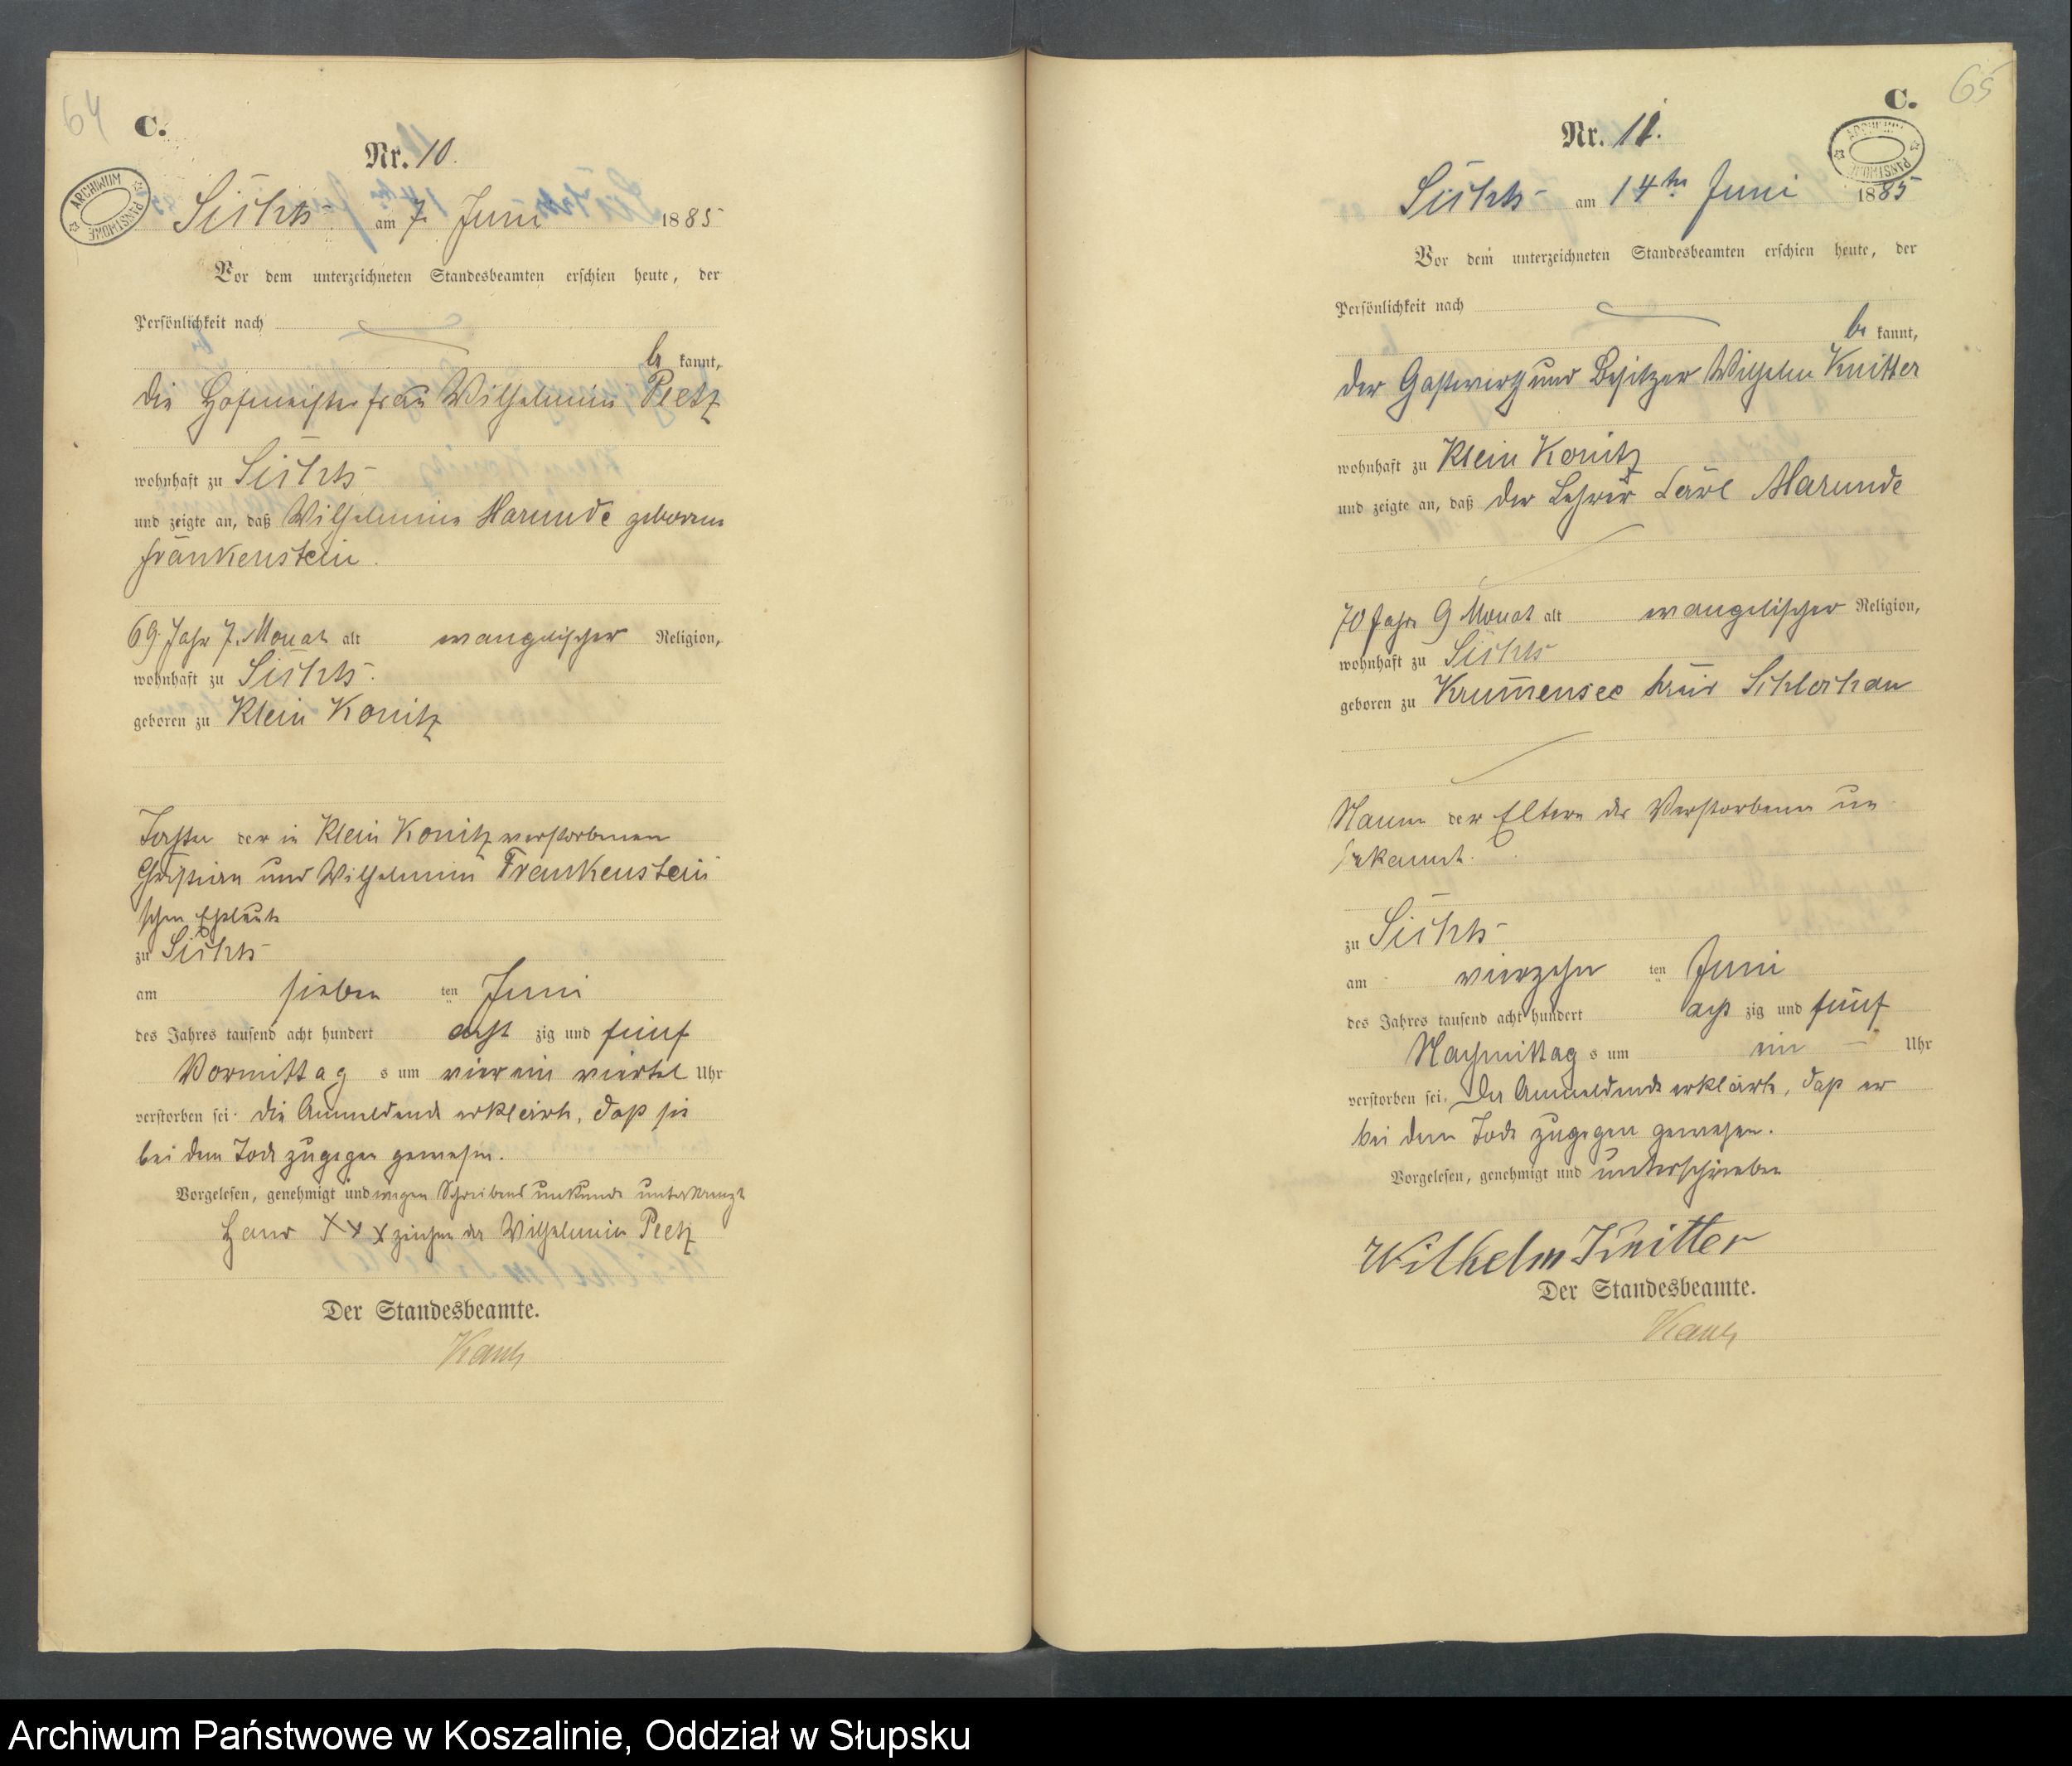 64
C.
Nr. 10.
ARCHIWUM PAŃSTWOWE
Sichts am 7. Juni 1885
Vor dem unterzeichneten Standesbeamten erschien heute, der
Persönlichkeit nach
be kannt,
die Hofmeisterfrau Wilhelmine Peetz
wohnhaft zu Sichts
und zeigte an, daß Wilhelmine Marunde geborene
Frankenstein.
69 Jahr 7 Monat alt evangelischer Religion,
wohnhaft zu Sichts.
geboren zu Klein Konitz
Tochter der in Klein Konitz verstorbenen
Christian und Wilhelmine Frankenstein
schen Eheleute
zu Sichts
am sieben ten Juni
des Jahres tausend acht hundert acht zig und fünf
Vormittag s um vier ein viertel Uhr
verstorben sei. Die Anmeldende erklärte, daß sie
bei dem Tode zugegen gewesen.
Vorgelesen, genehmigt und wegen Schreibens unkunde unterkreuzt
Hand XXX zeichen der Wilhelmine Peetz
Der Standesbeamte.
65
C.
Nr. 11.
ARCHIWUM PAŃSTWOWE
Sichts am 14ten Juni 1885
Vor dem unterzeichneten Standesbeamten erschien heute, der
Persönlichkeit nach
be kannt,
der Gastwirth und Besitzer Wilhelm Knitter
wohnhaft zu Klein Konitz
und zeigte an, daß der Lehrer Carl Marunde
70 Jahr 9 Monat alt evangelischer Religion,
wohnhaft zu Sichts
geboren zu Krummensee Kreis Schlochau
Namen der Eltern des Verstorbenen un
bekannt.
zu Sichts
am vierzehn ten Juni
des Jahres tausend acht hundert acht zig und fünf
Nachmittag s um ein Uhr
verstorben sei. Der Anmeldende erklärte, daß er
bei dem Tode zugegen gewesen.
Vorgelesen, genehmigt und unterschrieben
Wilhelm Knitter
Der Standesbeamte.
Archiwum Państwowe w Koszalinie, Oddział w Słupsku